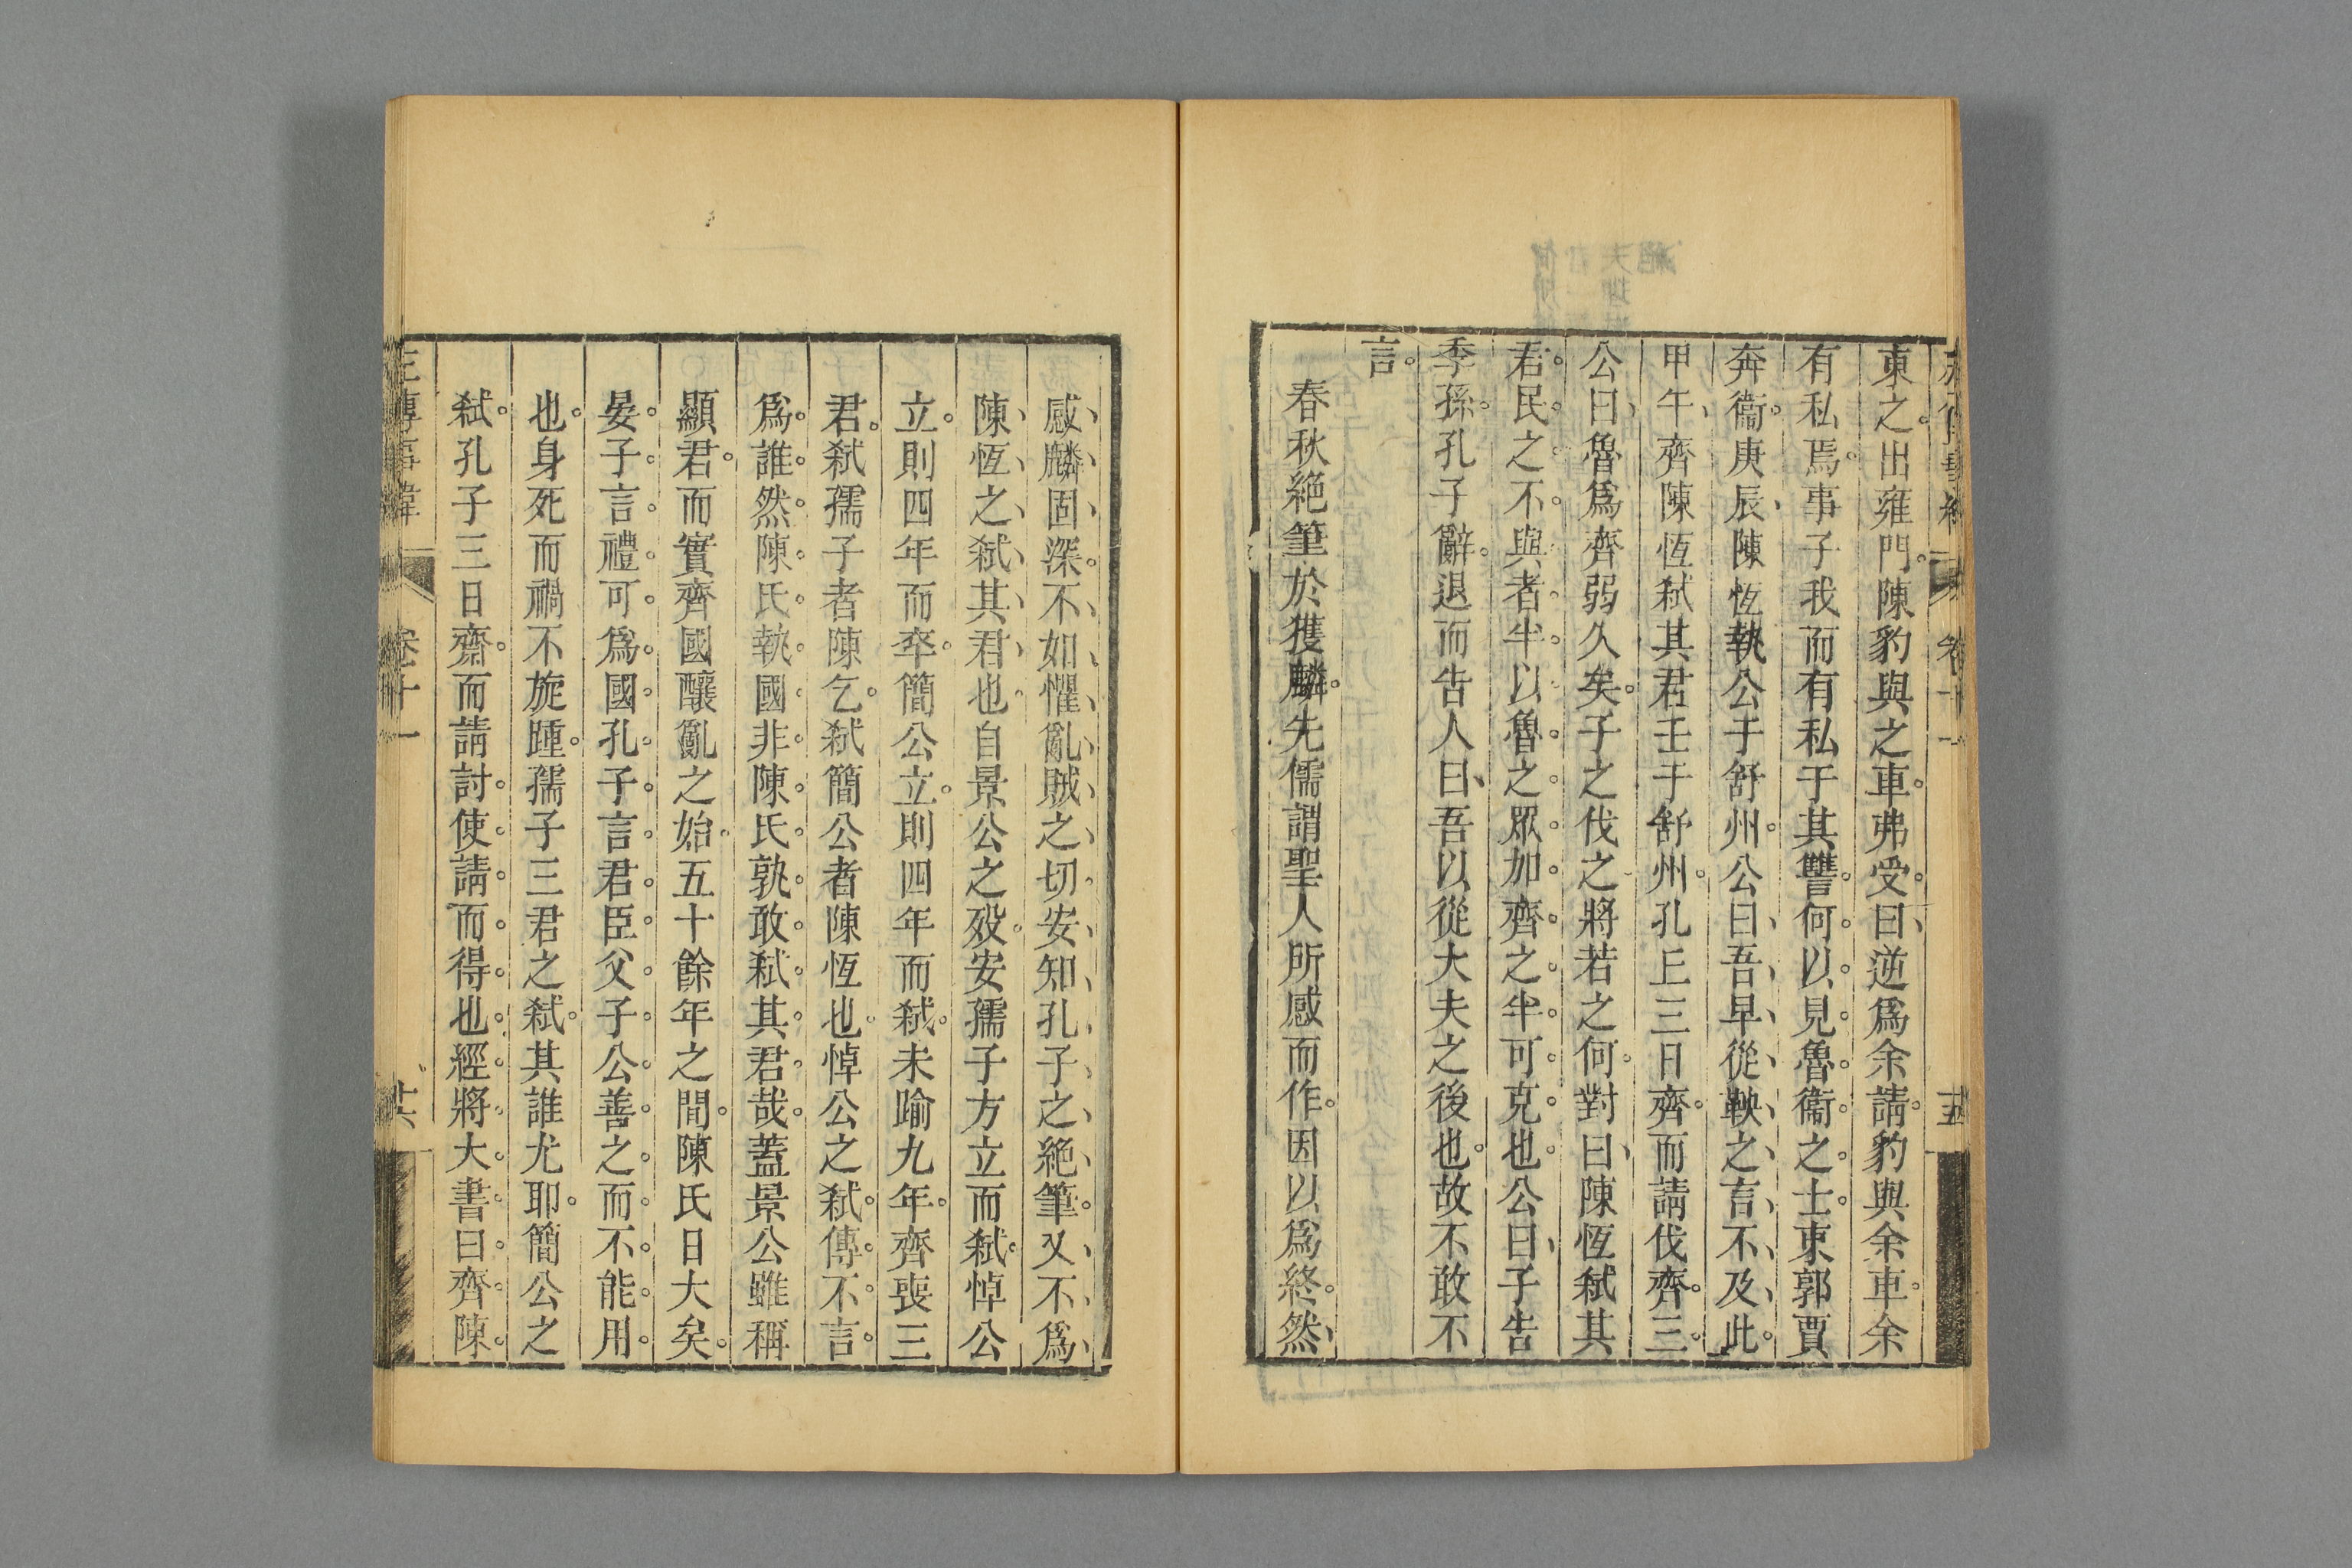 東之出雍門陳豹與之車弗受曰逆爲余請豹與余車余
有私焉事子我而有私于其讐何以見魯衞之士東郭賈
奔衞庚辰陳恆執公于舒州公曰吾早從鞅之言不及此
甲午齊陳恆弑其君壬于舒州孔丘三日齊而請伐齊三
公曰魯爲齊弱久矣子之伐之將若之何對曰陳恆弑其
君民之不與者半以魯之眾加齊之半可克也公曰子告
季孫孔子辭退而告人曰吾以從大夫之後也故不敢不
言
春秋絕筆於獲麟先儒謂聖人所感而作因以爲終然
感麟固深不如懼亂賊之切安知孔子之絕筆又不爲
陳恆之弑其君也自景公之歿安孺子方立而弑悼公
立則四年而卒簡公立則四年而弑未踰九年齊喪三
君弑孺子者陳乞弑簡公者陳恆也悼公之弑傳不言
爲誰然陳氏執國非陳氏孰敢弑其君哉蓋景公雖稱
顯君而實齊國釀亂之始五十餘年之間陳氏日大矣
晏子言禮可爲國孔子言君臣父子公善之而不能用
也身死而禍不旋踵孺子三君之弑其誰尤耶簡公之
弑孔子三日齋而請討使請而得也經將大書曰齊陳
左傳事緯 卷十一 廿六